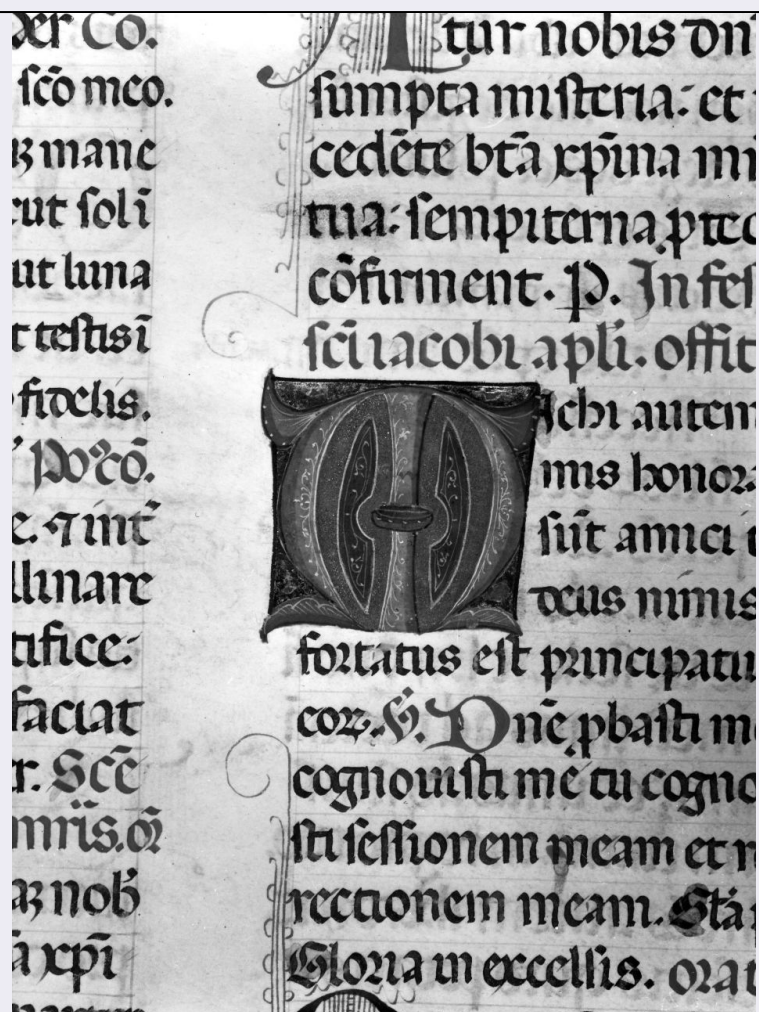 der Co.
sc̄o meo.
mane
cut solī
ut luna
t testis ī
fidelis.
Po᷒cō.
e. ⁊ int̄
llinare
tifice:
faciat
r. Scē
mr̄is. or̄
nob̄
ā xp̄i
tur nobis dn̄
sumpta misteria: et
cedēte bt̄ā xp̄ina mi
tua: sempiterna ptec
cōfirment. P. In fes
sc̄i iacobi apl̄i. offit
Michi autem
mis honora
sūt amici
deus nimis
fortatus est principatu
coꝝ. V̄. Dn̄e pbasti me
cognouisti me tu cogno
sti sessionem meam et r
rectionem meam. Gl̄a
Gloria in excelsis. orat